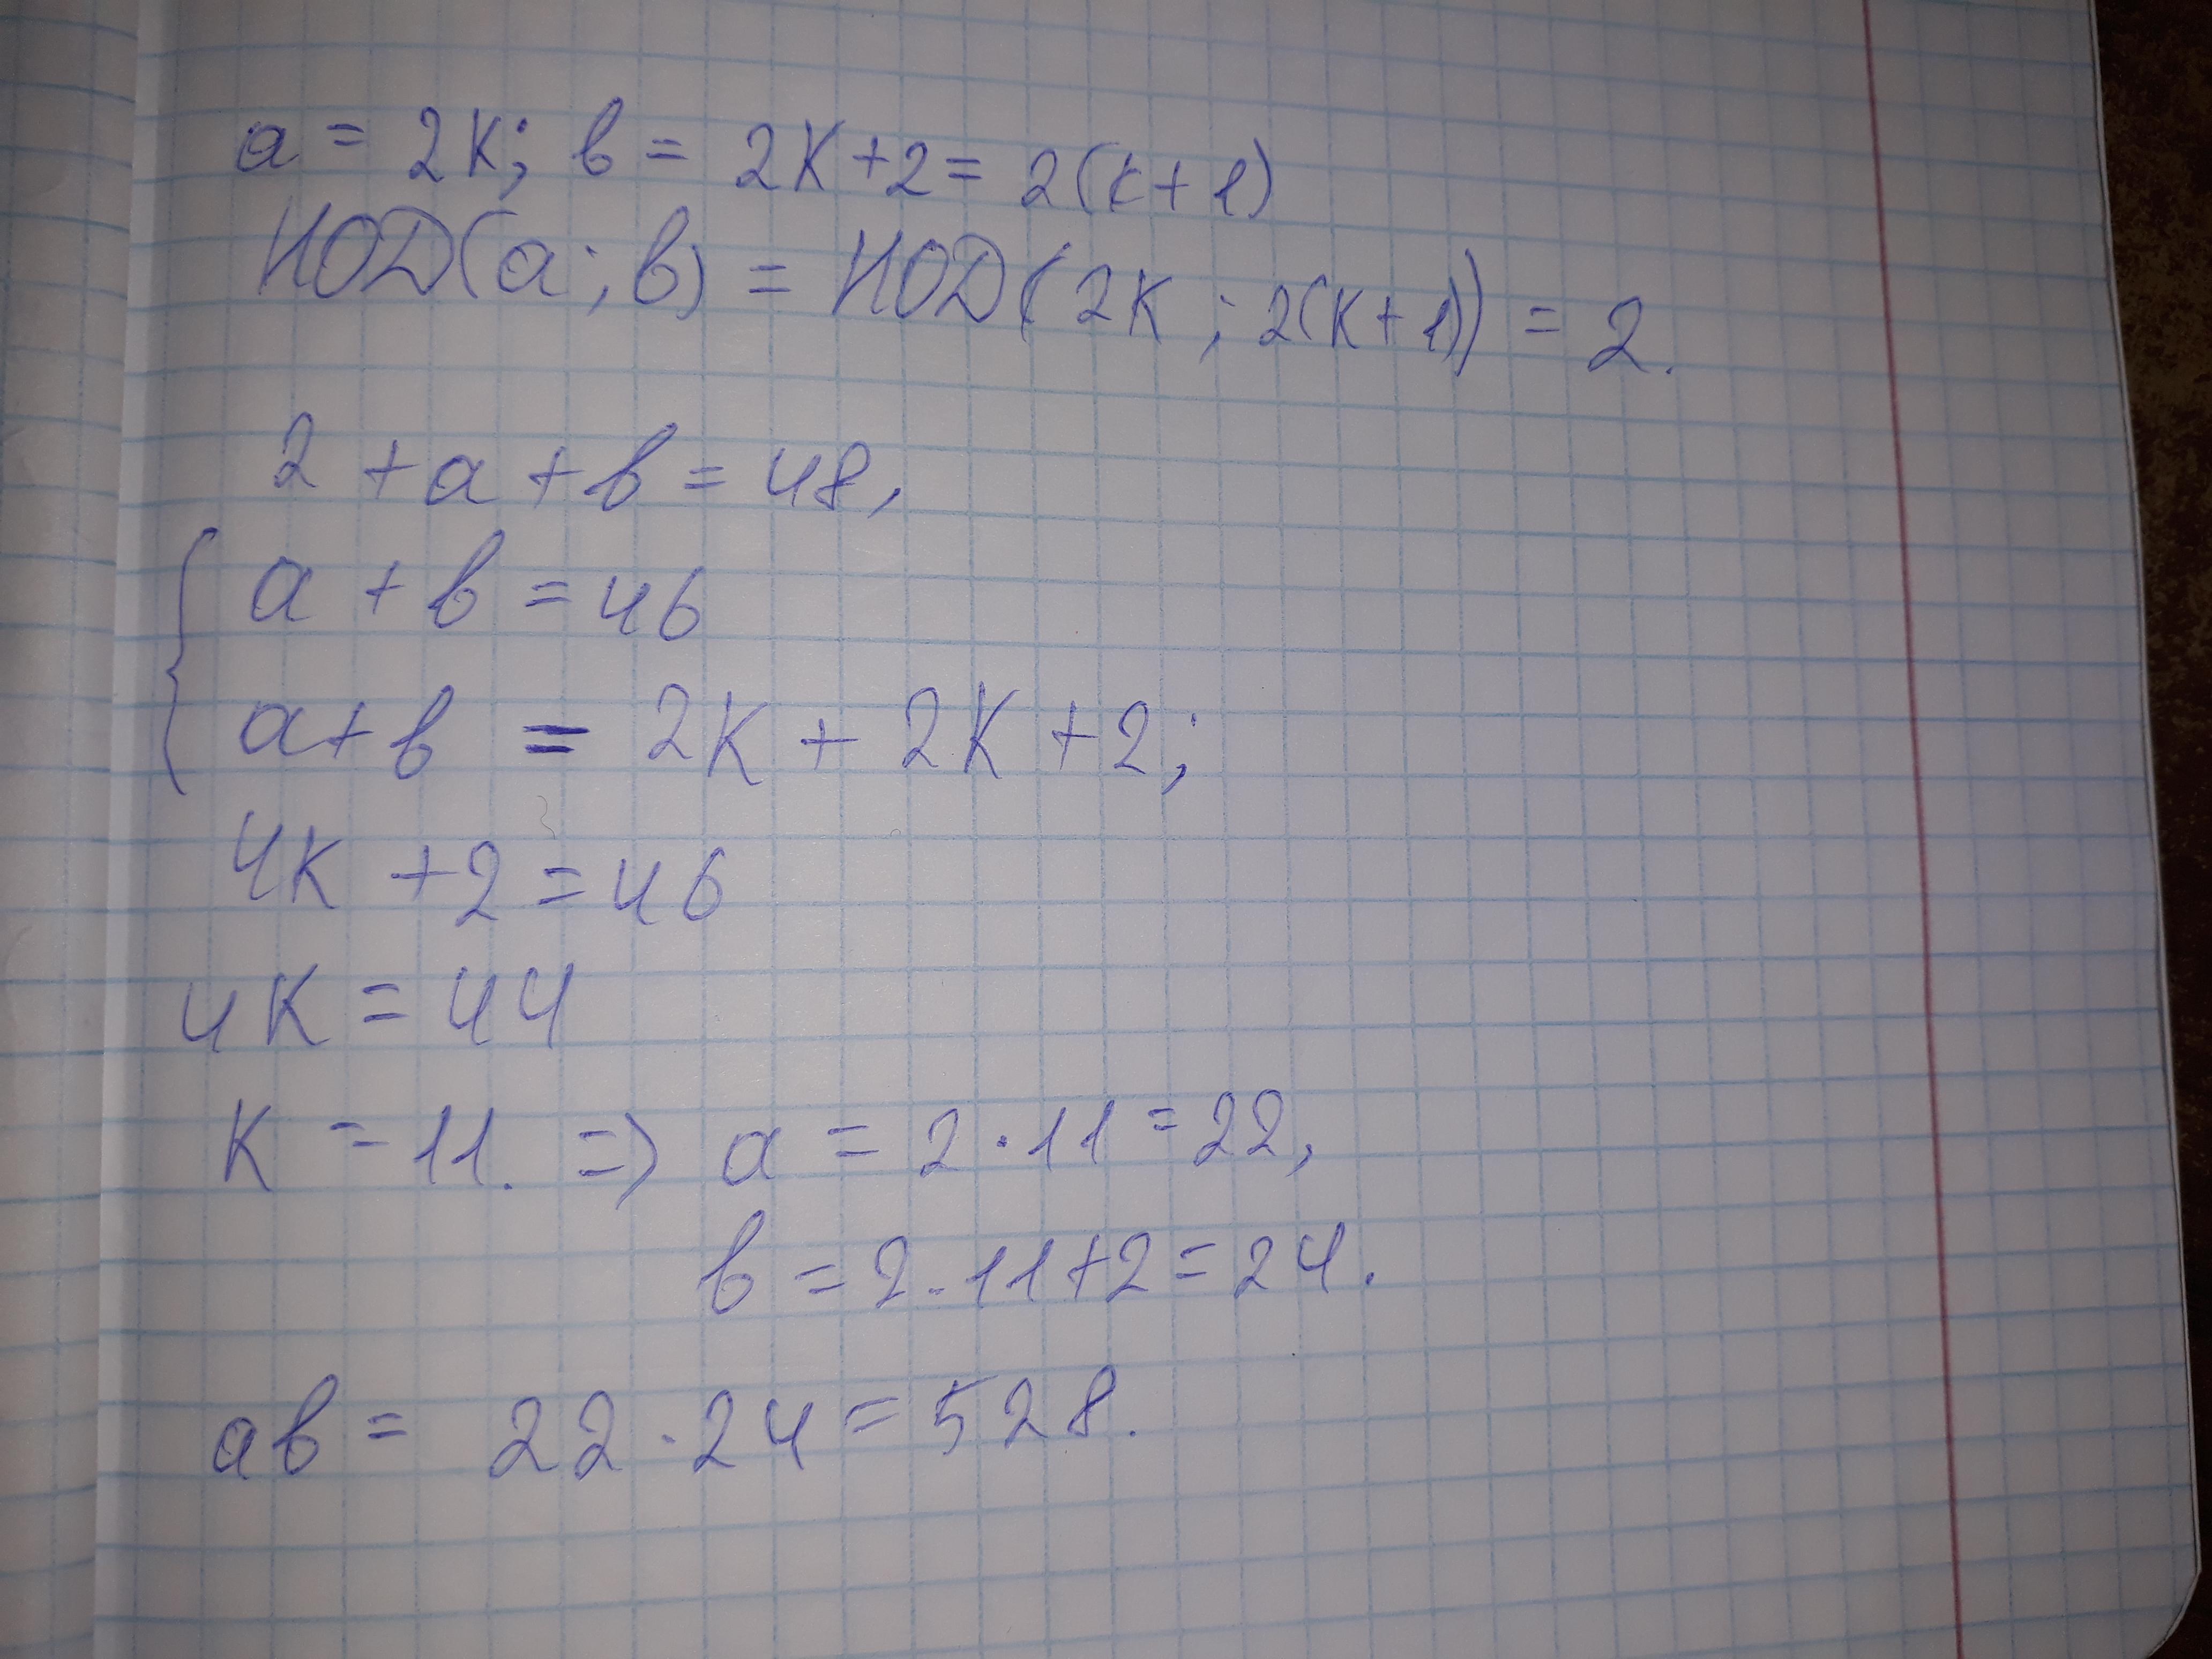 a = 2к; в = 2к+2 = 2(к+1)
НОД(a; в) = НОД(2к; 2(к+1)) = 2.
2 + a + в = 48,
{ a + в = 46
a+в = 2к + 2к + 2;
4к + 2 = 46
4к = 44
к = 11. => a = 2·11 = 22,
в = 2·11+2 = 24.
aв = 22·24 = 528.